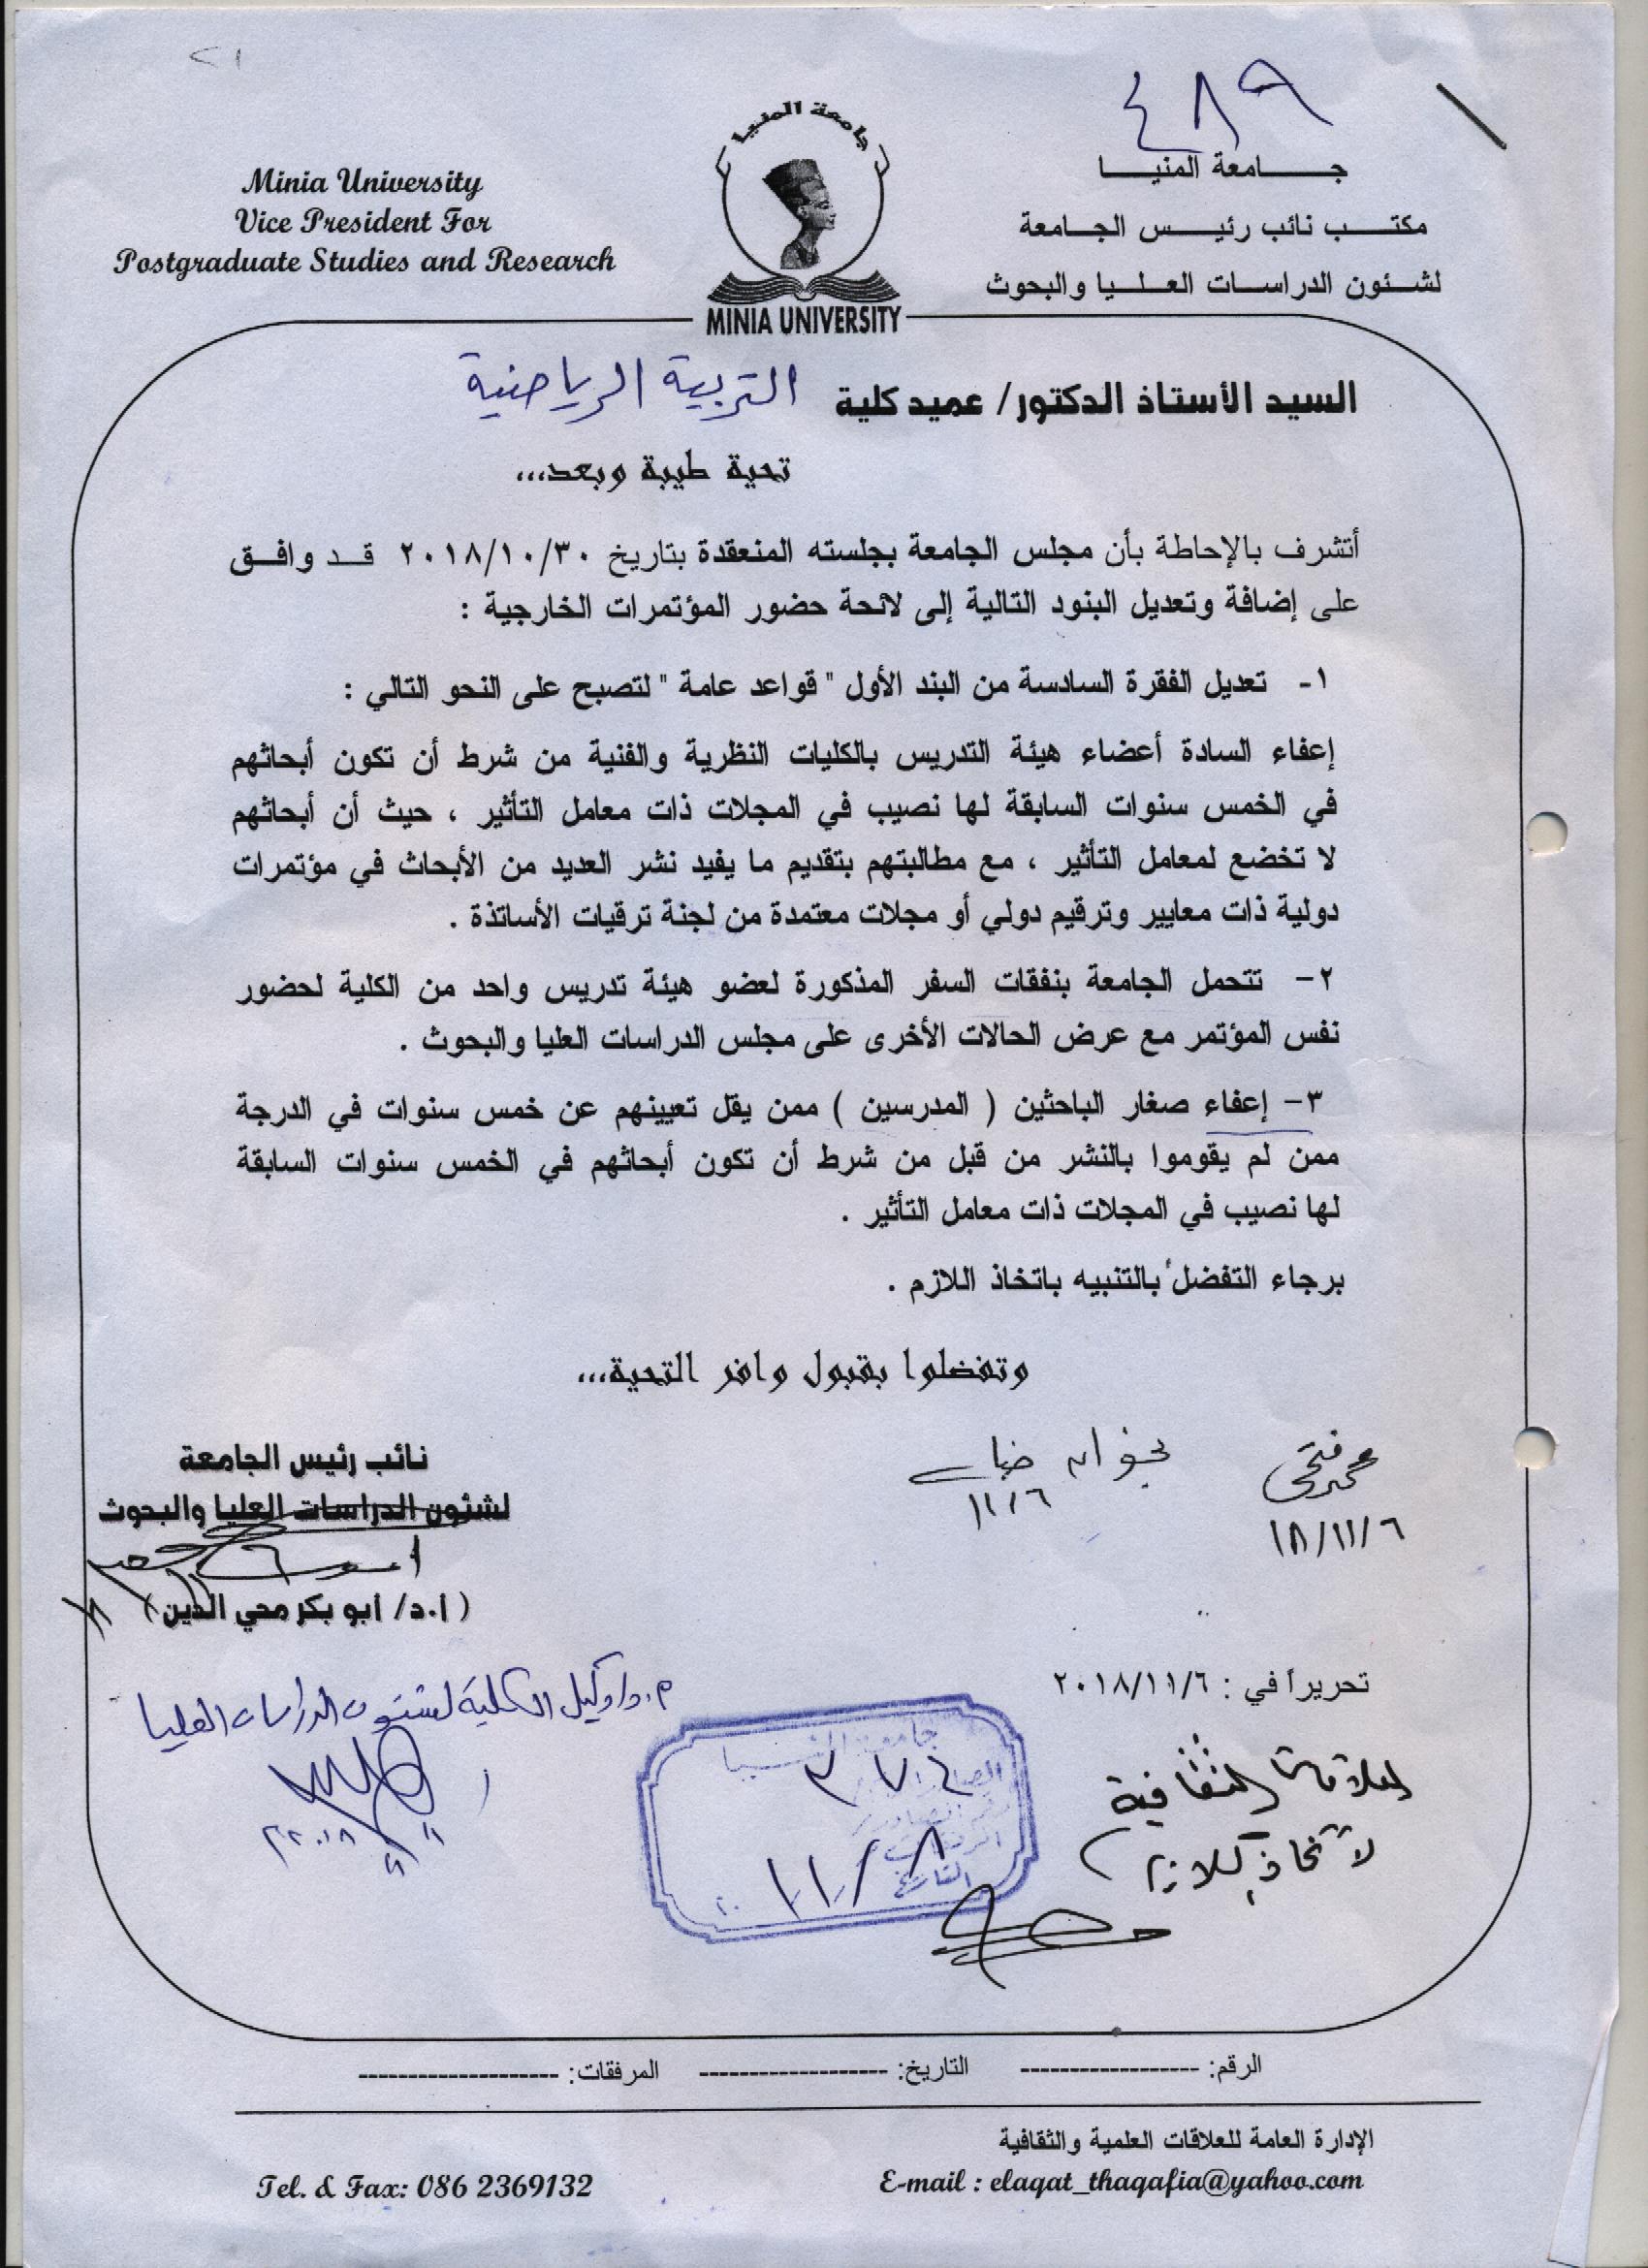 ٤٨٩
Minia University
Vice President For
Postgraduate Studies and Research
جامعة المنيا
MINIA UNIVERSITY
جـــــــامعة المنيـــــــا
مكتـــــب نائب رئيـــس الجـــامعة
لشـــئون الدراســـات العـلـــيا والبحوث
السيد الأستاذ الدكتور/ عميد كلية التربية الرياضية
تحية طيبة وبعد،،،
أتشرف بالإحاطة بأن مجلس الجامعة بجلسته المنعقدة بتاريخ ٢٠١٨/١٠/٣٠ قـد وافـق
على إضافة وتعديل البنود التالية إلى لائحة حضور المؤتمرات الخارجية :
١- تعديل الفقرة السادسة من البند الأول " قواعد عامة " لتصبح على النحو التالي :
إعفاء السادة أعضاء هيئة التدريس بالكليات النظرية والفنية من شرط أن تكون أبحاثهم
في الخمس سنوات السابقة لها نصيب في المجلات ذات معامل التأثير ، حيث أن أبحاثهم
لا تخضع لمعامل التأثير ، مع مطالبتهم بتقديم ما يفيد نشر العديد من الأبحاث في مؤتمرات
دولية ذات معايير وترقيم دولي أو مجلات معتمدة من لجنة ترقيات الأساتذة .
٢- تتحمل الجامعة بنفقات السفر المذكورة لعضو هيئة تدريس واحد من الكلية لحضور
نفس المؤتمر مع عرض الحالات الأخرى على مجلس الدراسات العليا والبحوث .
٣- إعفاء صغار الباحثين ( المدرسين ) ممن يقل تعيينهم عن خمس سنوات في الدرجة
ممن لم يقوموا بالنشر من قبل من شرط أن تكون أبحاثهم في الخمس سنوات السابقة
لها نصيب في المجلات ذات معامل التأثير .
برجاء التفضل بالتنبيه باتخاذ اللازم .
وتفضلوا بقبول وافر التحية،،،
محمد فتحي
١٨/١١/٦
١١/٦
نائب رئيس الجامعة
لشئون الدراسات العليا والبحوث
( أ.د/ أبو بكر محي الدين )
تحريراً في : ٢٠١٨/١١/٦
أ.د/ وكيل الكلية لشئون الدراسات العليا
جامعة المنيا
٣٧٤
التاريخ ١١/٨
العلاقات الثقافية
لاتخاذ اللازم
الرقم: ------------------ التاريخ: ------------------- المرفقات: --------------------
الإدارة العامة للعلاقات العلمية والثقافية
Tel. & Fax: 086 2369132
E-mail : elaqat_thaqafia@yahoo.com